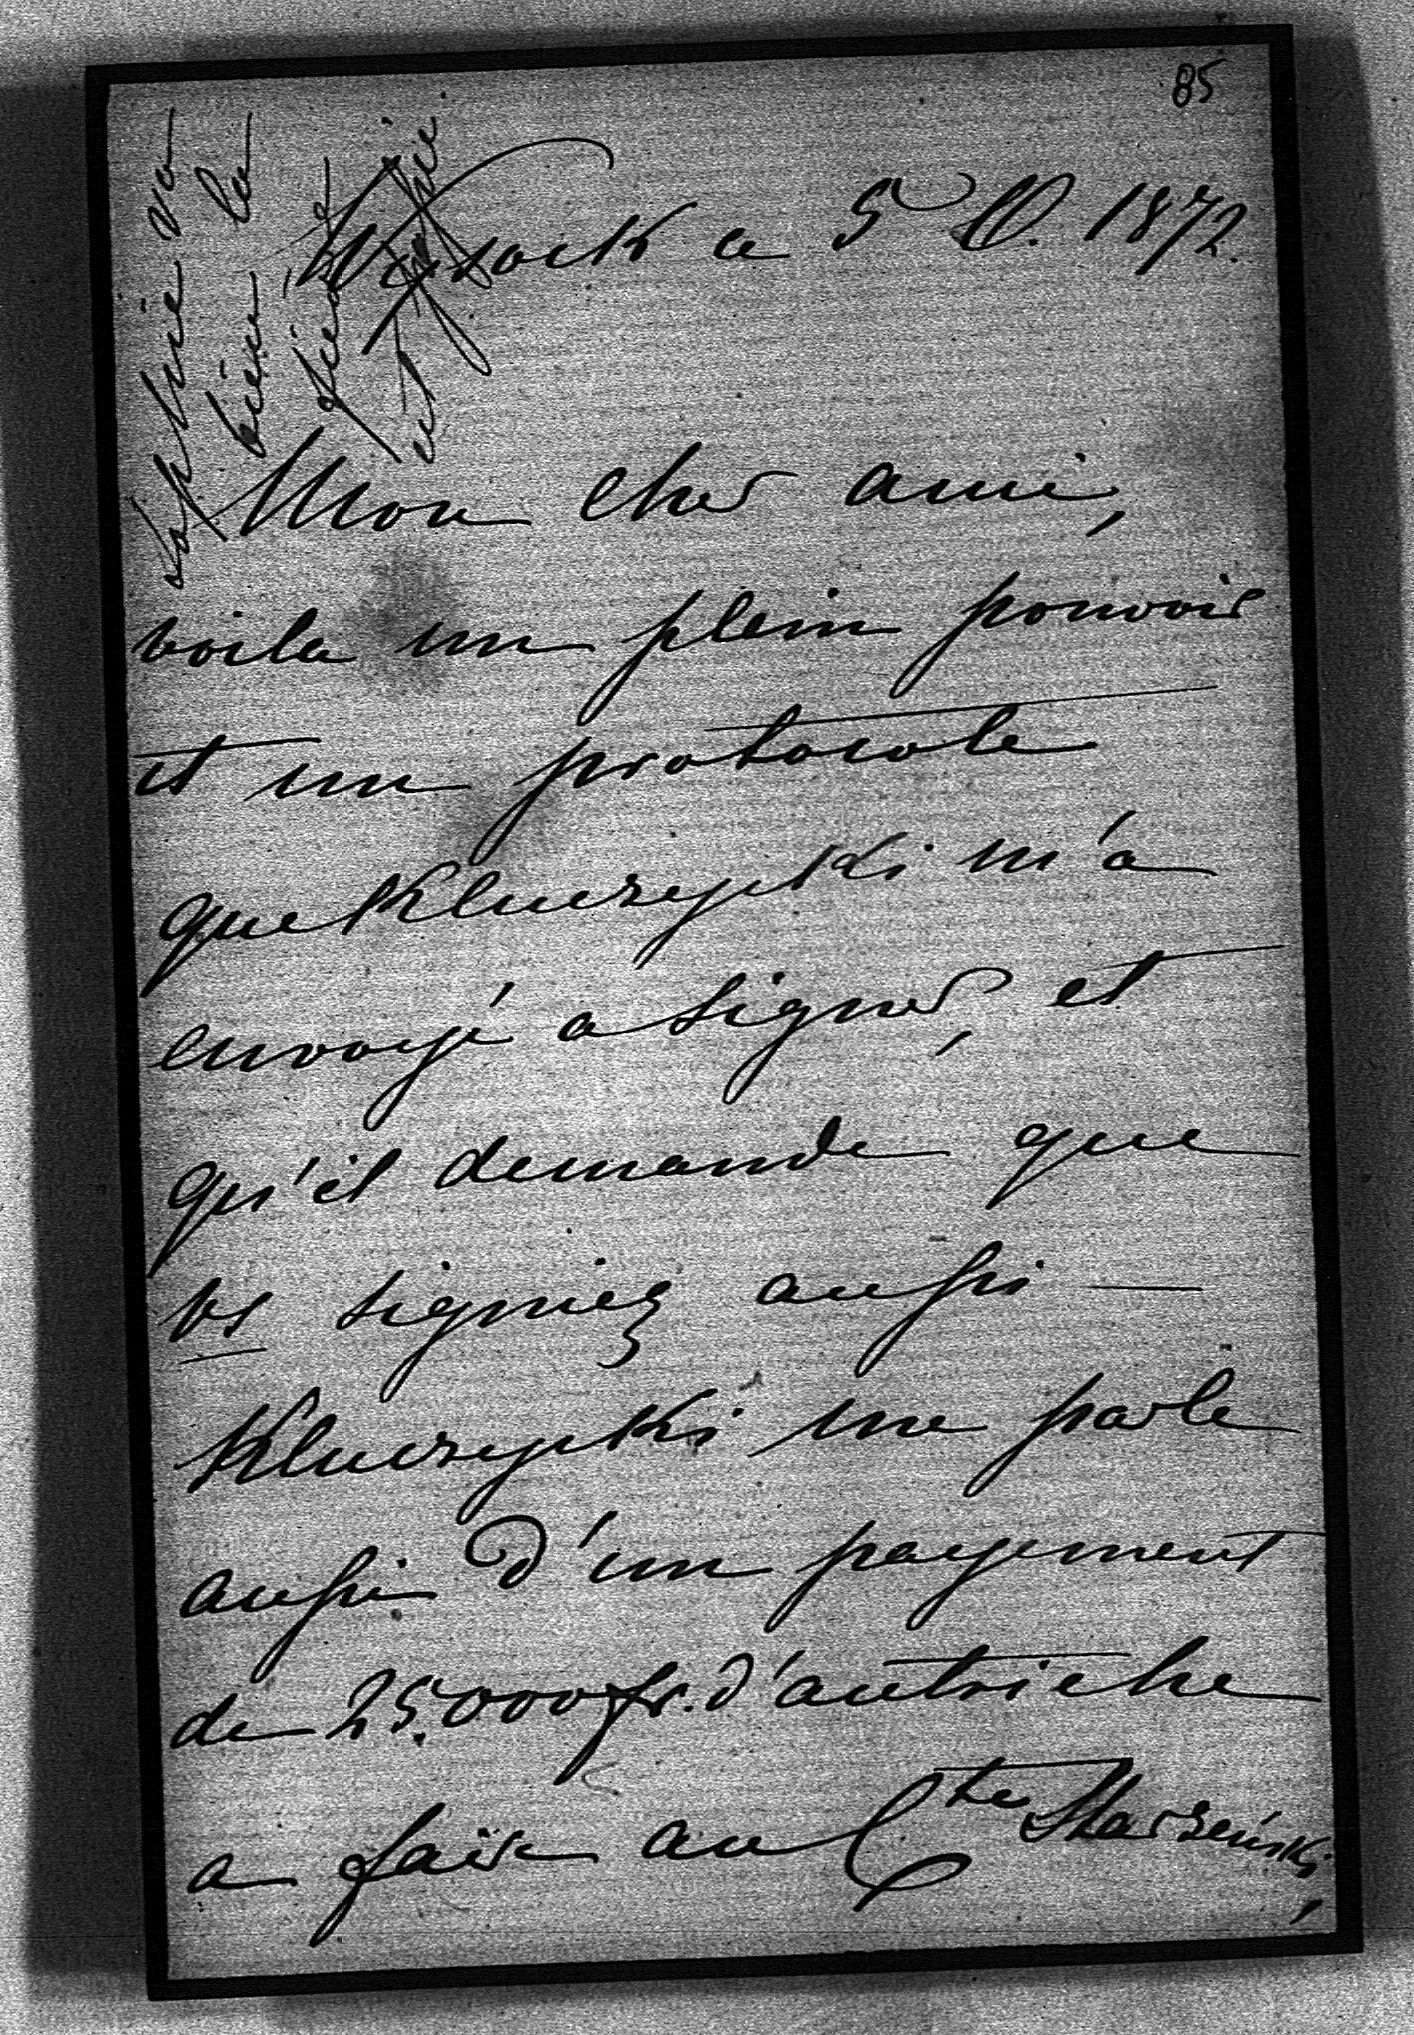 85
Wysock a 5 O. 1872.
Mon cher ami,
voila un plein pouvoir
et un protocole
que Kluczycki m'a
envoyé a signer, et
qu'il demande que
vs signiez aussi —
Kluczycki me parle
aussi d'un payement
de 25.000 fr. d'autriche
a faire au Cte Starzeński,
Sophie va
bien la
et